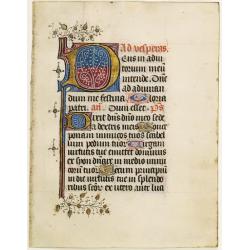 Ad vesperas.
Deus in adiu
torium meum
intende. Dn̄e
ad adiuuan
dum me festina. Gloria
patri. an̄. Dum esset. ps̄
Dixit dn̄s dn̄o meo sede
a dextris meis.
inimicos tuos scabel
lum pedum tuoȝ. Virgam
uirtutis tue emittet dominus
ex syon dn̄are in medio inimi
coȝ tuoȝ. Tecum principium
in die uirtutis tue in splendo
ribus sc̄oȝ ex utero ante luci